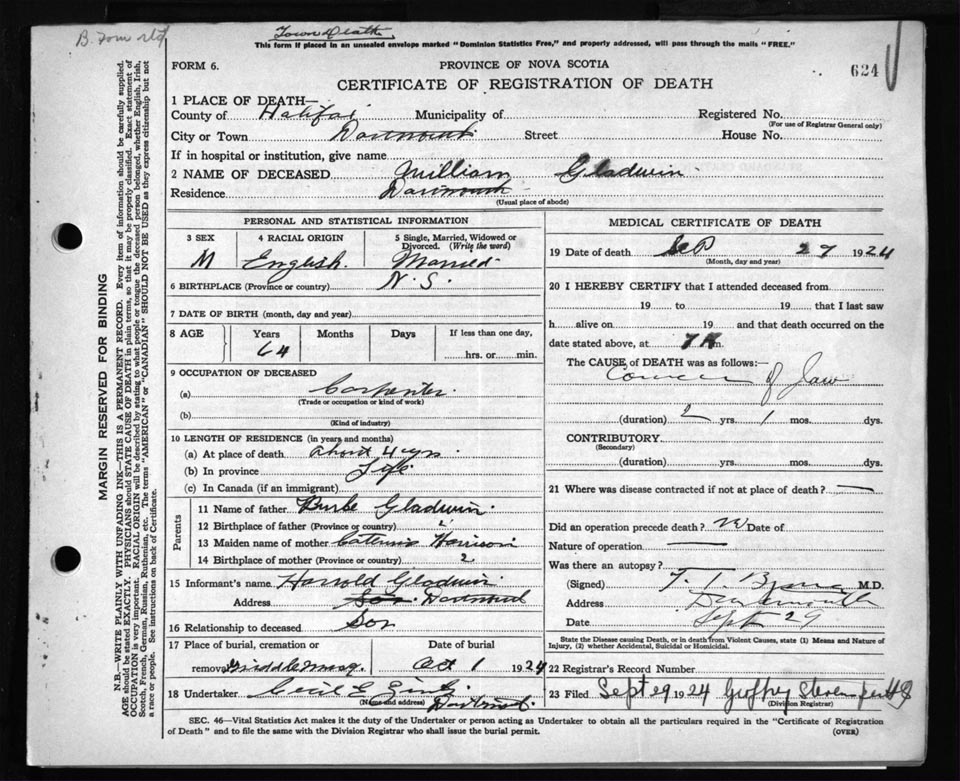 Town Death
This form if placed in an unsealed envelope marked "Dominion Statistics Free," and properly addressed, will pass through the mails "FREE."
FORM 6.
PROVINCE OF NOVA SCOTIA
624
CERTIFICATE OF REGISTRATION OF DEATH
1 PLACE OF DEATH—
County of Halifax Municipality of Registered No.
(For use of Registrar General only)
City or Town Dartmouth Street House No.
If in hospital or institution, give name
2 NAME OF DECEASED William Gladwin
Residence Dartmouth
(Usual place of abode)
PERSONAL AND STATISTICAL INFORMATION
3 SEX 4 RACIAL ORIGIN 5 Single, Married, Widowed or Divorced. (Write the word)
M English. Married.
6 BIRTHPLACE (Province or country) N.S.
7 DATE OF BIRTH (month, day and year)
8 AGE Years Months Days If less than one day,
64 hrs. or min.
9 OCCUPATION OF DECEASED
(a) Carpenter
(Trade or occupation or kind of work)
(b)
(Kind of industry)
10 LENGTH OF RESIDENCE (in years and months)
(a) At place of death about 4 yrs
(b) In province Life
(c) In Canada (if an immigrant)
Parents
11 Name of father Burke Gladwin
12 Birthplace of father (Province or country)
13 Maiden name of mother Harrison
14 Birthplace of mother (Province or country)
15 Informant's name Harrold Gladwin
Address Son Dartmouth
16 Relationship to deceased Son
17 Place of burial, cremation or Date of burial
removal Middle Musq. Oct 1 1924
18 Undertaker Cecil E
(Name and address) Dartmouth
MEDICAL CERTIFICATE OF DEATH
19 Date of death Sep 27 1924
(Month, day and year)
20 I HEREBY CERTIFY that I attended deceased from
19 to 19 that I last saw
h alive on 19 and that death occurred on
date stated above, at 7 m.
The CAUSE of DEATH was as follows:—
Cancer of Jaw
(duration) 2 yrs. 1 mos. dys.
CONTRIBUTORY
(Secondary)
(duration) yrs. mos. dys.
21 Where was disease contracted if not at place of death? —
Did an operation precede death? no Date of
Nature of operation —
Was there an autopsy?
(Signed) M.D.
Address Dartmouth
Date Sept 29
State the Disease causing Death, or in death from Violent Causes, state (1) Means and Nature of Injury, (2) whether Accidental, Suicidal or Homicidal.
22 Registrar's Record Number
23 Filed Sept 29 1924
(Division Registrar)
SEC. 46—Vital Statistics Act makes it the duty of the Undertaker or person acting as Undertaker to obtain all the particulars required in the "Certificate of Registration
of Death" and to file the same with the Division Registrar who shall issue the burial permit. (OVER)
MARGIN RESERVED FOR BINDING
N.B.—WRITE PLAINLY WITH UNFADING INK—THIS IS A PERMANENT RECORD. Every item of information should be carefully supplied.
AGE should be stated EXACTLY. PHYSICIANS should STATE CAUSE OF DEATH in plain terms, so that it may be properly classified. Exact statement of
OCCUPATION is very important. RACIAL ORIGIN will be described by stating to what people or tongue the deceased person belonged, whether English, Irish,
Scotch, French, German, Russian, Ruthenian, etc. The terms "AMERICAN" or "CANADIAN" SHOULD NOT BE USED as they express citizenship but not
a race or people. See instructions on back of Certificate.